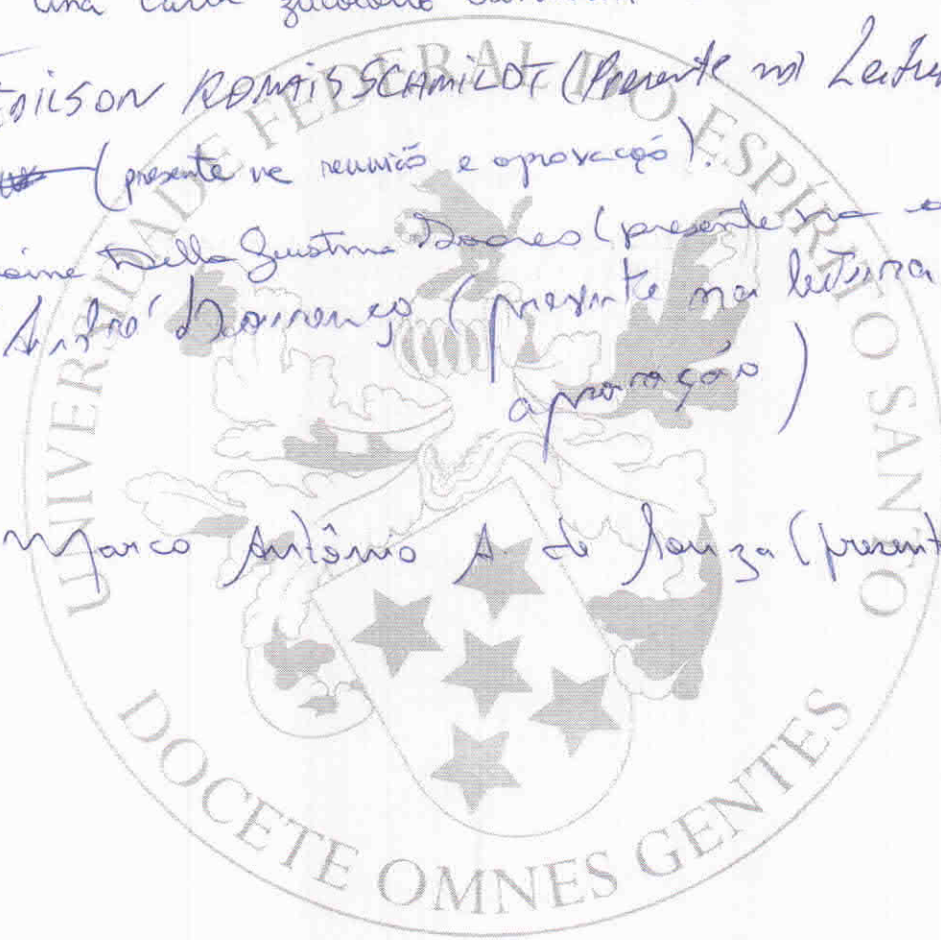 una
EDILSON ROMAIS SCHMILDT (Presente na Leitura
(presente na reunião e aprovação).
Della Giustina Soares (presente na
André Lourenço (presente na leitura
aprovação)
Marco Antônio A. de Souza (presente
UNIVERSIDADE FEDERAL DO ESPÍRITO SANTO
DOCETE OMNES GENTES